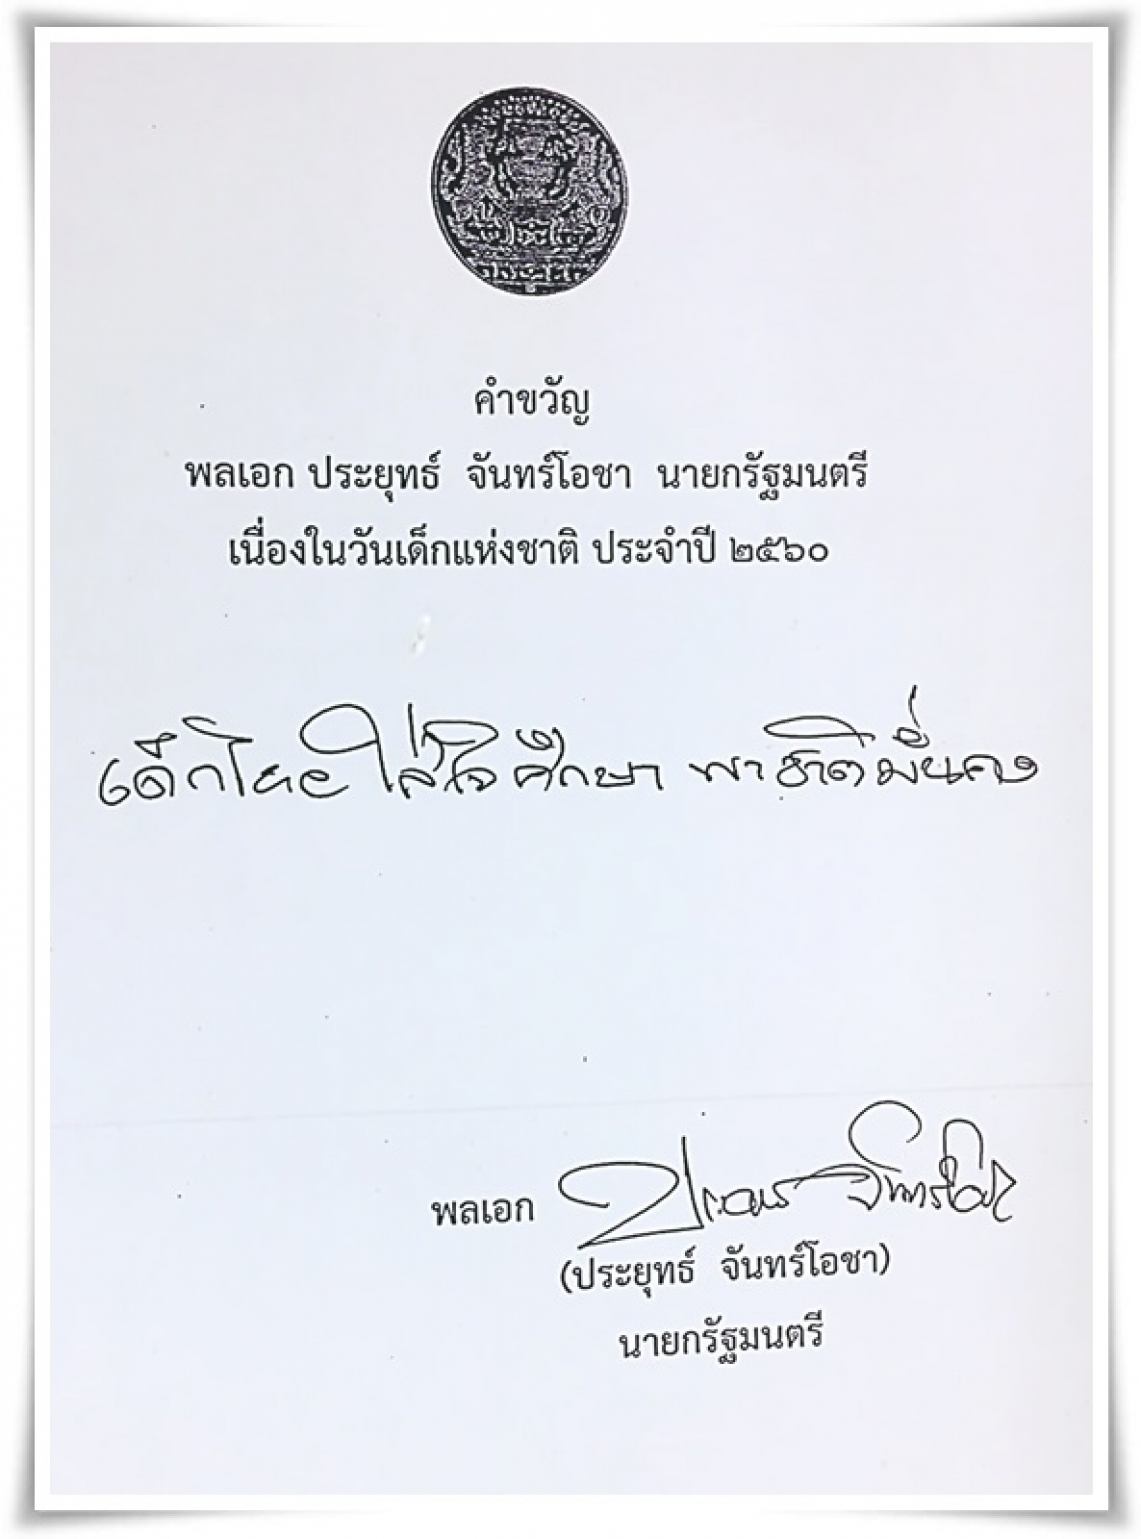 คำขวัญ
พลเอก ประยุทธ์ จันทร์โอชา นายกรัฐมนตรี
เนื่องในวันเด็กแห่งชาติ ประจำปี ๒๕๖๐
เด็กไทย ใส่ใจศึกษา พาชาติมั่นคง
พลเอก
(ประยุทธ์ จันทร์โอชา)
นายกรัฐมนตรี